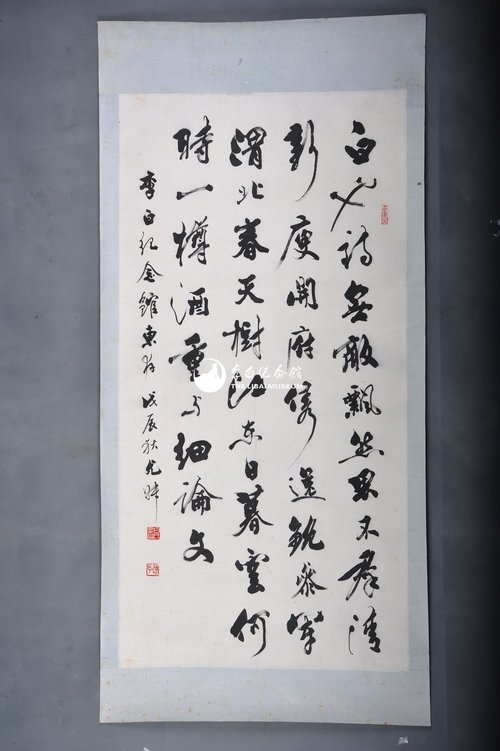 白也詩無敵飄然思不羣清
新庾開府俊逸鮑參軍
渭北春天樹江東日暮雲何
時一樽酒重与細論文
李白紀念館惠存 戊辰秋
李白纪念館
THE LIBAI MUSEUM